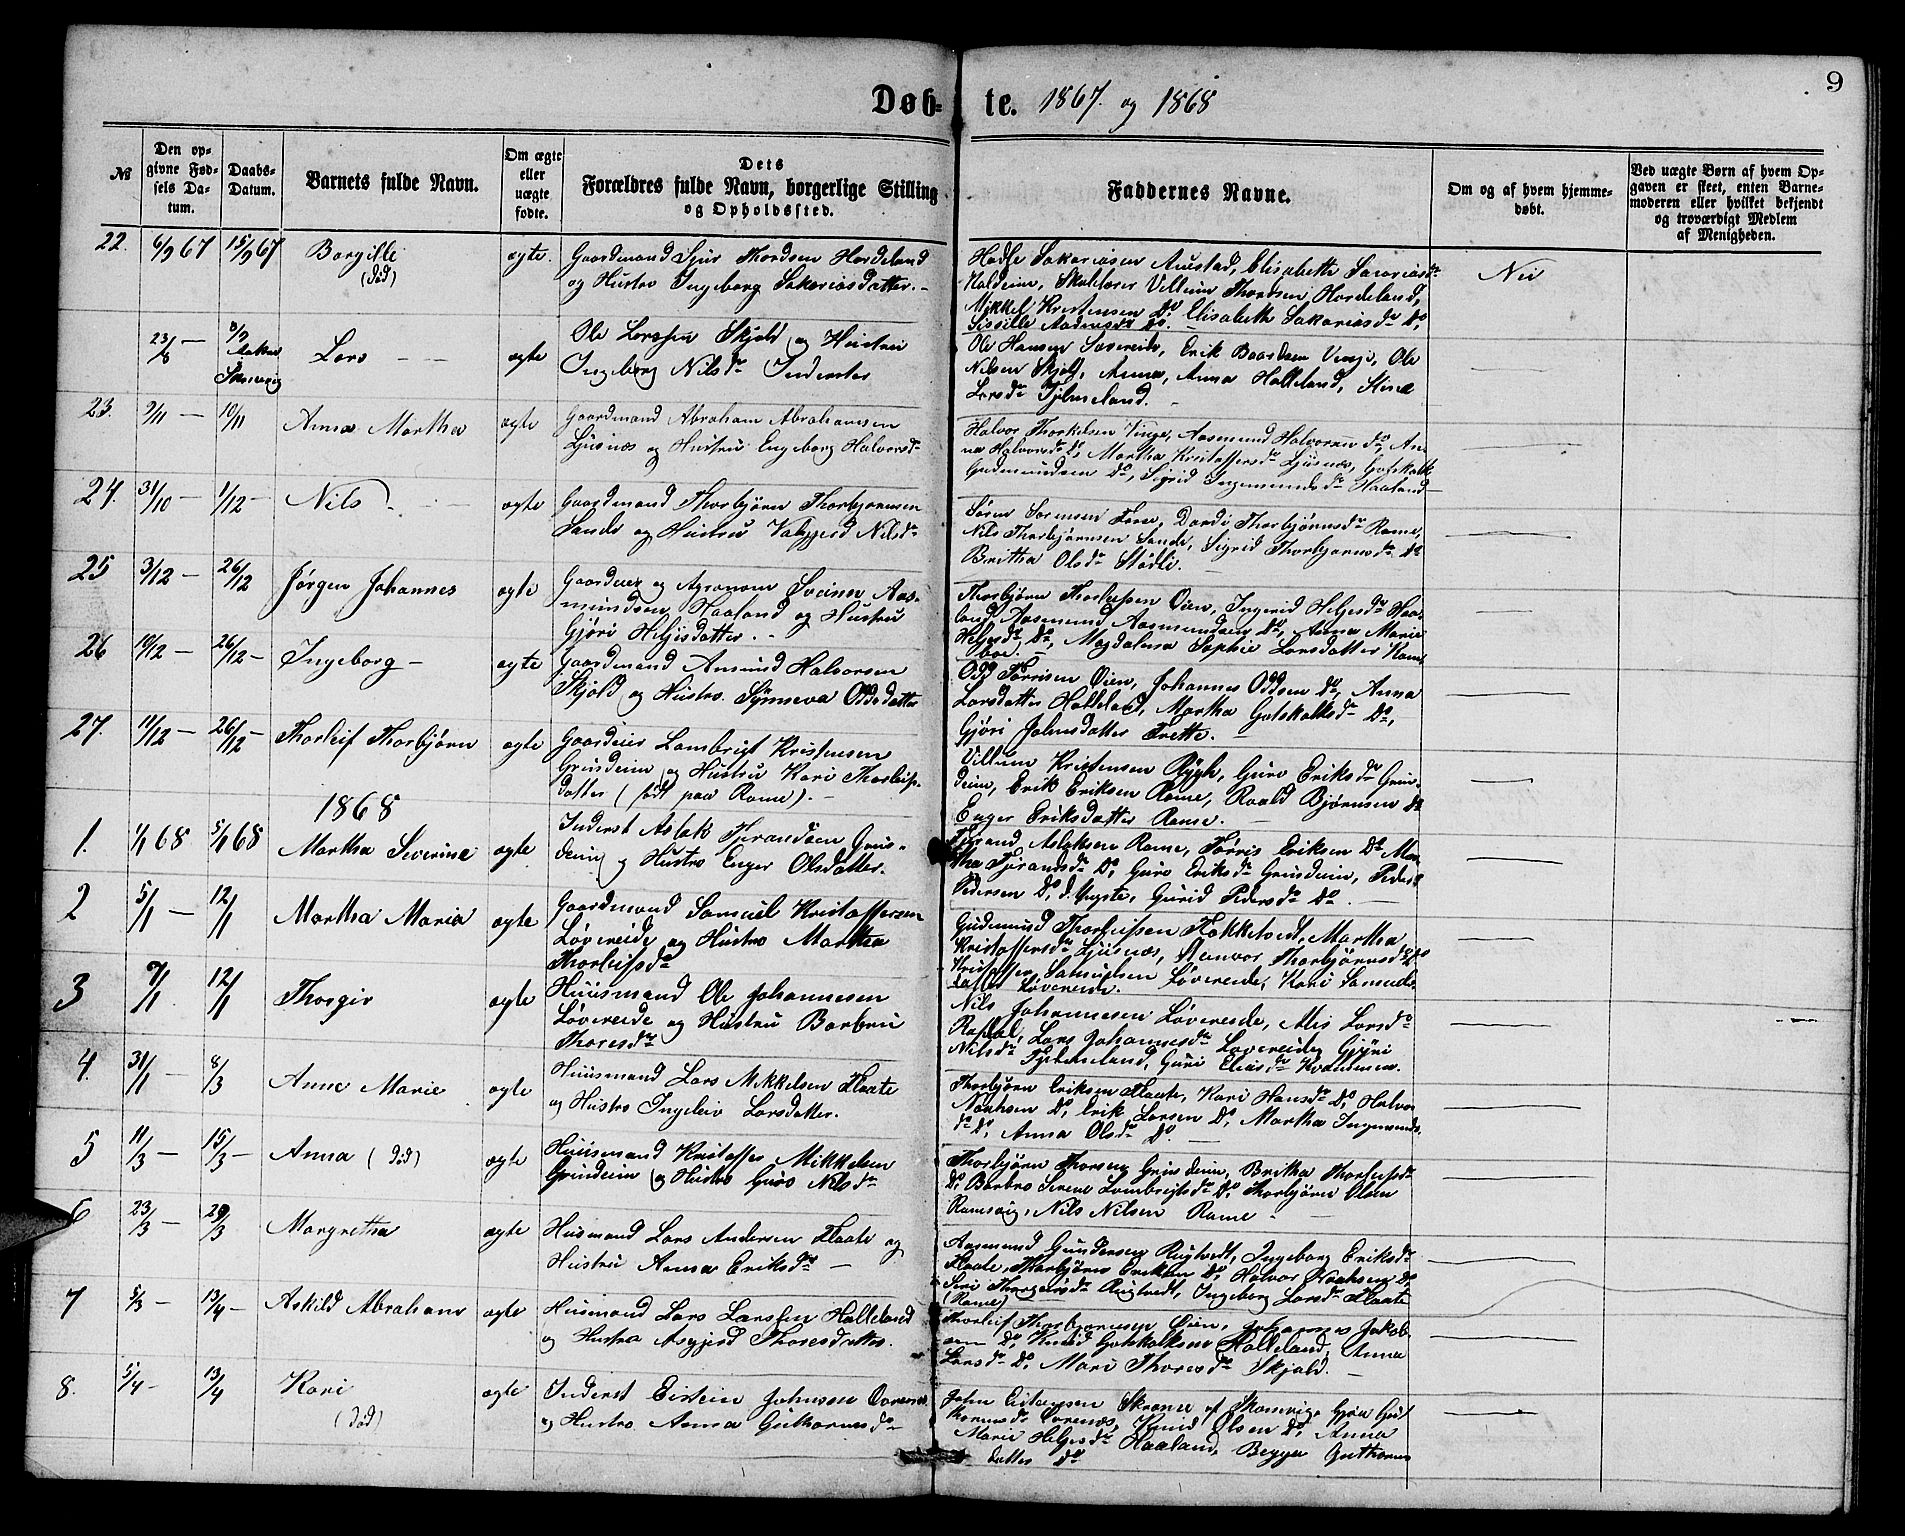 9
Døb- te. 1867. og 1868
№
Den opgivne Fødsels Datum.
Daabs-Datum.
Barnets fulde Navn.
Om ægte eller uægte fødte.
Dets Forældres fulde Navn, borgerlige Stilling og Opholdssted.
Faddernes Navne.
Om og af hvem hjemmedøbt.
Ved uægte Børn af hvem Opgaven er skeet, enten Barnemoderen eller hvilket bekjendt og troværdigt Medlem af Menigheden.
22. 6/9 67 15/9 67 Borgille
(død)
ægte.
Gaardmand Sjur Thordsen Hordeland
og Hustro Ingeborg Sakariasdatter. -
Elisabeth
Thordsen Hordeland,
Mikkel Kristensen Do, Elisabeth Sakariasdr Do,
Nei
23/8 - Lars - -
ægte
Ole Larssen Skjold og Hustru
Ingeborg Nilsdr Inderster
Ole Hansen
Nilsen Skjold, Anna, Anna Halleland, Stine
Larsdr Tjelmeland. -
23. 9/11 - 10/11 Anna Martha
ægte
Gaardmand Abraham Abrahamsen
Ljusnæs og Hustru Engeborg Halvorsdr
Halvor Thorkelsen Vinje, Aasmund Halvorsen do, An-
na Halvorsdr do, Martha Kristoffersdr Ljusnæs, Gotskalk
Gudmundsen Do, Sigrid Ingemundsdr Haaland -
24. 31/10 - 1/12 - Nils -
ægte
Gaardmand Thorbjørn Thorbjørnsen
Sande og Hustru Valgjerd Nilsdr
Søren Sørensen Thorbjørnsdr Rame,
Nils Thorbjørnsen Sande, Sigrid Thorbjørnsdr Do
Britha Olsdr Stødle. -
25 3/12 - 26/12 Jørgen Johannes
ægte
Gaardeier og Agronom Aas-
mundsen Haaland og Hustru
Gjøri Helgisdatter. -
Thorbjørn Øien, Ingerid Helgesdr Haa-
land, Aasmund Aasmundsen Do, Anna Marie
Helgesdr Do, Magdalena Sophie Larsdatter
26 10/12 - 26/12 - Ingeborg -
ægte
Gaardmand Amund Halvorsen
Skjold og Hustro. Synneva Oddsdatter
Odd Tørrisen Øien, Johannes Oddsen do, Anna
Larsdatter Halleland, Martha Gotskalksdr Do,
Gjøri Johnsdatter Frette. -
27. 11/12 - 26/12 - Thorleif Thorbjørn
ægte
Gaardeier Lambrigt Kristensen
Grindeim og Hustru Kari Thorleifs-
datter (født paa Rame). -
Villum Kristensen Rygh, Guro Eriksdr Grin-
deim, Erik Eriksen Rame, Roald Bjørnsen do
Enger Eriksdatter Rame. -
1868
1. 1/1 68 5/1 68 Martha Severine
ægte
Inderst Aslak Tjerandsen Grin-
deim og Hustro Enger Olsdatter.
Tjerand Aslaksen Rame, Tørris Eriksen Do Mar-
tha Tjerandsdr Do, Guro Eriksdr Grindeim, Peder
Pedersen Do, d. Yngste, Gurid Pedersdr Do. -
2 5/1 - 12/1 Martha Maria
ægte
Gaardmand Samuel Kristoffersen
Løvereide og Hustro Martha
Thorleifsdr
Gudmund Thorleifsen Martha
Kristoffersdr Ljusnæs, Thorbjørnsdr Do
Kristoffer Samuelsen Løvereide, Kari Samuels-
datter Løvereide.
3 7/1 12/1 Thorgir
ægte
Huusmand Ole Johannesen
Løvereide og Hustru Barbru
Thoresdr
Nils Johannesen Løvereide, Larsdr
Lars Johannesdr Løvereide, Gjøri
Nilsdr Tjelmeland, Guri Eliasdr
4. 31/1 - 8/3 Anne Marie
ægte
Huusmand Lars Mikkelsen Flaate
og Hustro Ingeleiv Larsdatter.
Thorbjørn Eriksen Flaate, Kari Hansdr Do, Halvor
Do, Erik Larsen Do, Martha Ingemunds-
dr Do, Anna Olsdr Do. -
5 11/3 - 15/3 - Anna (død)
ægte
Huusmand Kristoffer Mikkelsen
Grindeim og Hustro Guro Nilsdr
Thorbjørn Thorsen Grindeim, Britha Thorleifsdr
Do, Barbro Serene Lambrigtsdr Do, Thorbjørn Olsen
Ramsvig, Nils Nilsen Rame -
6 23/3 - 29/3 Margretha
ægte
Husmand Lars Andersen Flaate og
Hustru Anna Eriksdr -
Aasmund Gundersen Rugtvedt, Ingeborg Eriksdr
Flaate, Thorbjørn Eriksen Do, Halvor Do,
Rugtvedt, Ingeborg Larsdr Flaate
(Rame)
7 5/3 - 13/4 - Askild Abraham
ægte
Husmand Lars Larssen Halleland
og Hustro Asgjerd Thoresdatter.
Thorleif Thorbjørnsen Øien, Johannes Jakob-
sen Do, Knud Gotskalksen Halleland, Anna
Larsdr Do, Mari Thoresdr Skjold. -
8. 5/4 - 13/4 Kari
(død)
ægte
Inderst Eistein Johnsen
og Hustro Anna Guthormsdr
John Eistensen af Skamvig, Gjøa Gut-
hormsdr Knud Olsen Do, Anna
Marie Helgesdr Haaland, Guthorms-
datter Do